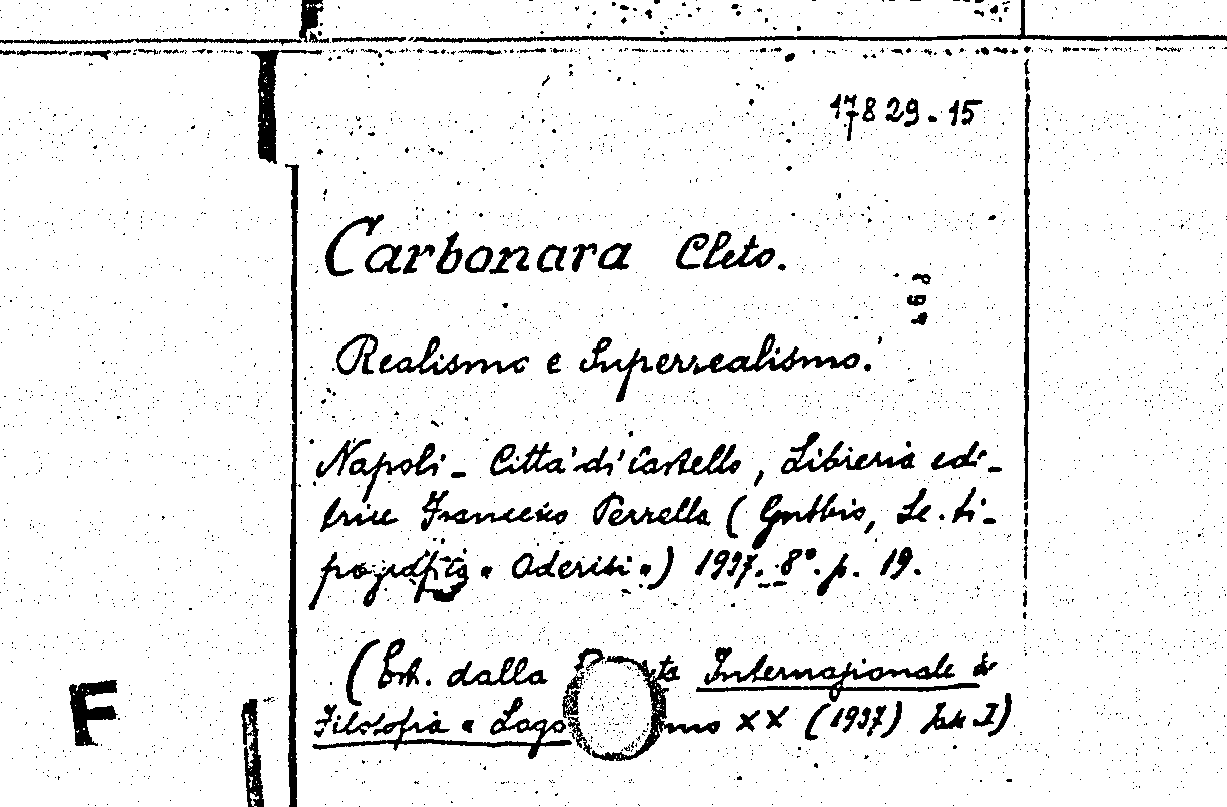 17829-15
Carbonara Cleto.
Realismo e Superrealismo.
Napoli - Città di Castello, Libreria edi-
trice Francesco Perrella (Gubbio, Sc. ti-
pografica "Oderisi") 1937. 8°. p. 19.
(Estr. dalla Internazionale di
Filosofia e XX (1937) Fasc. I)
F